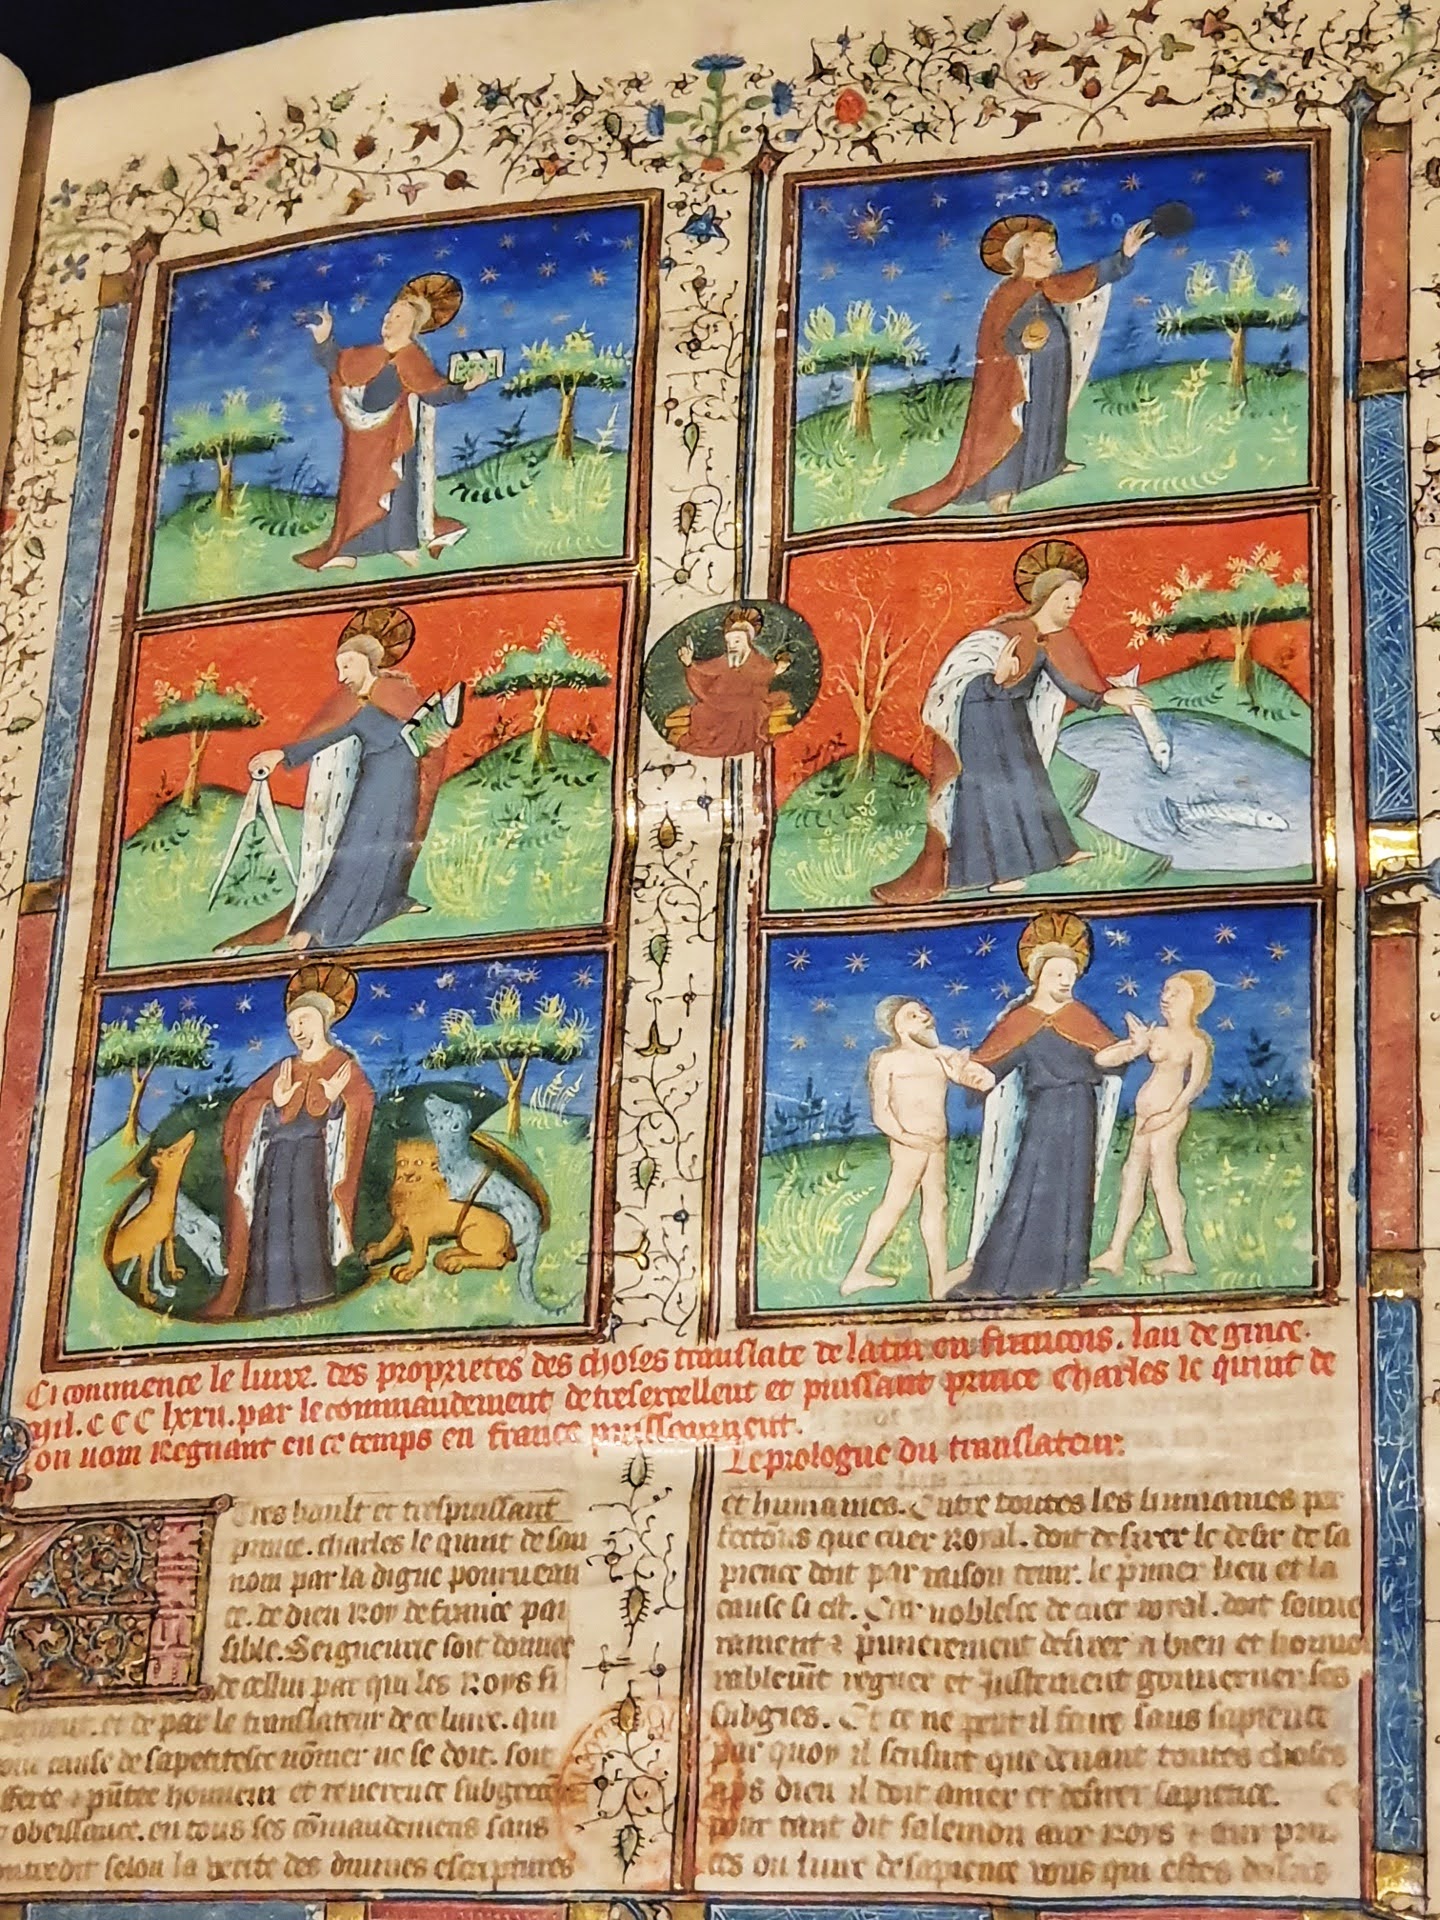 Ci commence le liure. des proprietes des choses translate de latin en francois. lan de grace.
mil. CCC lxxii. par le commandement de tresexcellent et puissant prince Charles le quint de
son nom Regnant en ce temps en france puissaument.
Le prologue du translateur.
Tres hault et trespuissant
prince. charles le quint de son
nom par la digne pouruean
ce. de dieu Roy de france pai
sible. Seigneurie soit donnee
de cellui par qui les Roys si
regnent. et de par le translateur de ce liure. qui
pour cause de sa petitesce nōmer ne se doit. soit
offerte honneur et reuerence subgeccion
obeissance. en tous ses cōmandemens sans
contredit selon la verite des diuines escriptures
et humaines. Entre toutes les humaines per
fections que cuer Royal. doit desirer le desir de sa
pience doit par raison tenir. le p̄mier lieu et la
cause si est. Car noblesce de cuer royal. doit souue
rainement & p̄mierement desirer a bien et honno
rablem̄t regner et Justement gouuerner ses
subgies. Et ce ne peut il faire sans sapience
par quoy il sensuit que deuant toutes choses
aps dieu il doit amer et desirer sapience.
pour tant dit salemon aux roys & aux prin
ces ou liure de sapience vous qui estes